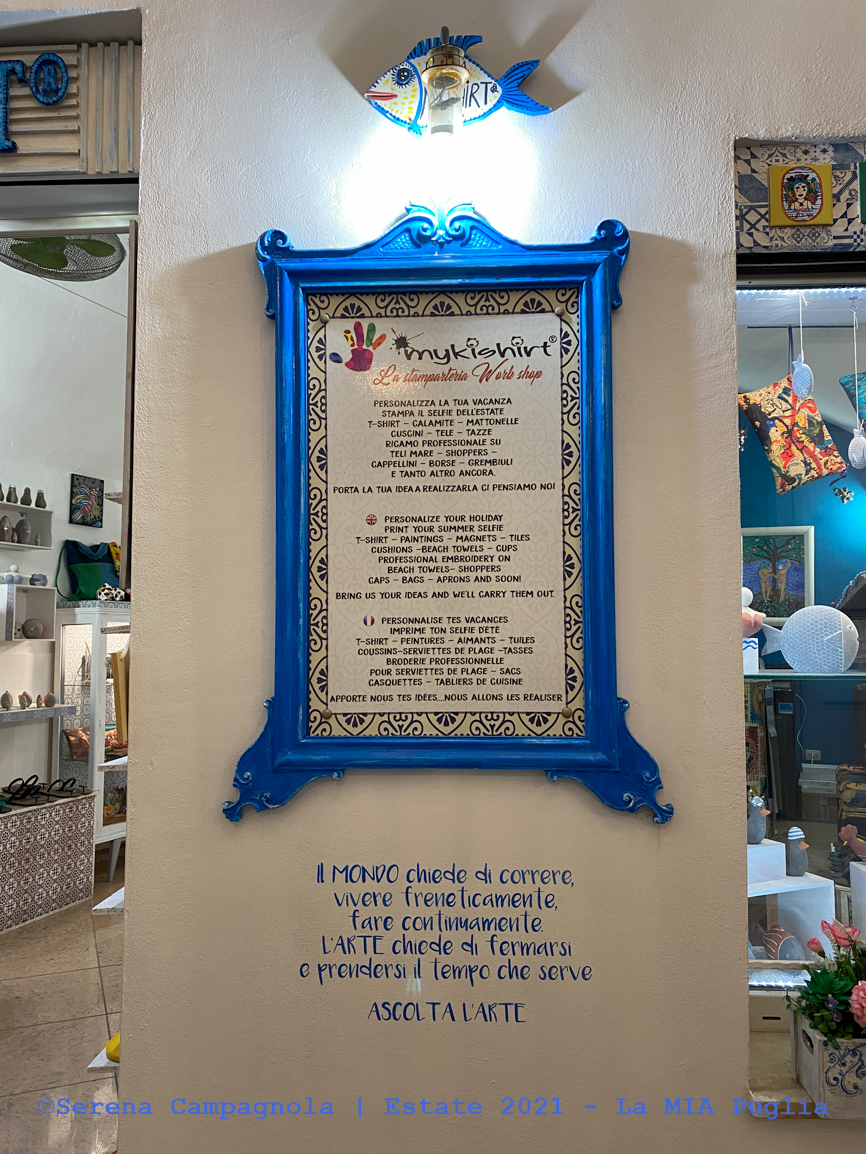 HIRT®
T®
mykishirt®
La stamparteria Work shop
PERSONALIZZA LA TUA VACANZA
STAMPA IL SELFIE DELL'ESTATE
T-SHIRT – CALAMITE – MATTONELLE
CUSCINI – TELE – TAZZE
RICAMO PROFESSIONALE SU
TELI MARE – SHOPPERS –
CAPPELLINI – BORSE – GREMBIULI
E TANTO ALTRO ANCORA.
PORTA LA TUA IDEA A REALIZZARLA CI PENSIAMO NOI
PERSONALIZE YOUR HOLIDAY
PRINT YOUR SUMMER SELFIE
T-SHIRT – PAINTINGS – MAGNETS – TILES
CUSHIONS –BEACH TOWELS – CUPS
PROFESSIONAL EMBROIDERY ON
BEACH TOWELS– SHOPPERS
CAPS – BAGS – APRONS AND SOON!
BRING US YOUR IDEAS AND WE'LL CARRY THEM OUT.
PERSONNALISE TES VACANCES
IMPRIME TON SELFIE D'ÉTÉ
T-SHIRT – PEINTURES – AIMANTS – TUILES
COUSSINS-SERVIETTES DE PLAGE -TASSES
BRODERIE PROFESSIONNELLE
POUR SERVIETTES DE PLAGE – SACS
CASQUETTES – TABLIERS DE CUISINE
APPORTE NOUS TES IDÉES...NOUS ALLONS LES RÉALISER
Il MONDO chiede di correre,
vivere freneticamente,
fare continuamente.
L'ARTE chiede di fermarsi
e prendersi il tempo che serve
ASCOLTA L'ARTE
©Serena Campagnola | Estate 2021 - La MIA Puglia